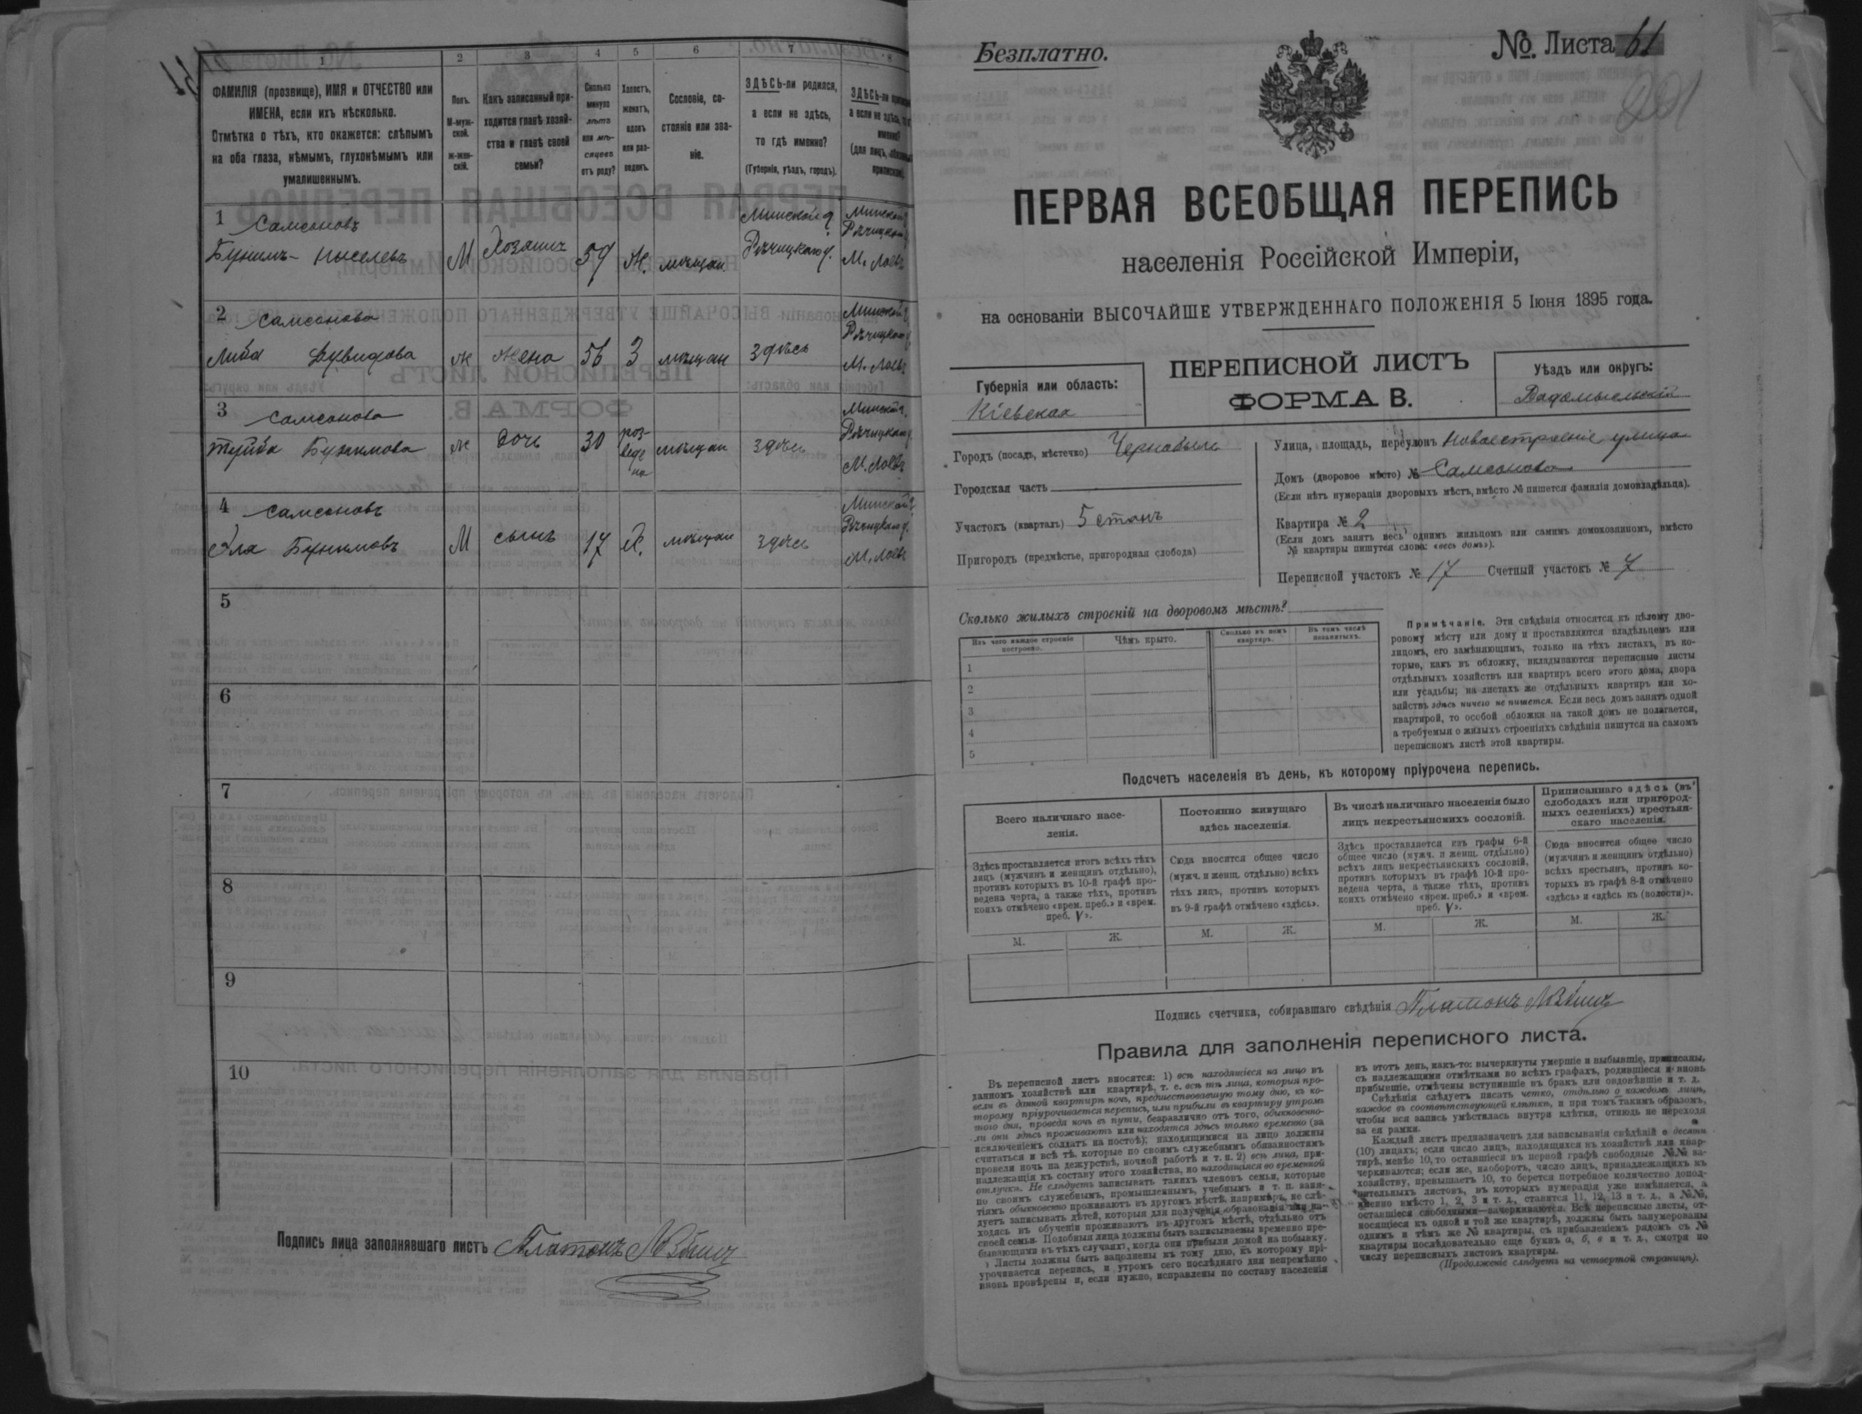 1
2
3
4
5
6
7
ФАМИЛІЯ (прозвище), ИМЯ и ОТЧЕСТВО или
ИМЕНА, если ихъ нѣсколько.
Отмѣтка о тѣхъ, кто окажется: слѣпымъ
на оба глаза, нѣмымъ, глухонѣмымъ или
умалишеннымъ.
Полъ.
М-муж-
ской.
ж-жен-
скій.
Какъ записанный при-
ходится главѣ хозяй-
ства и главѣ своей
семьи?
Сколько
минуло
лѣтъ
или мѣ-
сяцевъ
отъ роду?
Холостъ,
женатъ,
вдовъ
или раз-
веденъ.
Сословіе, со-
стояніе или зва-
ніе.
ЗДѢСЬ-ли родился,
а если не здѣсь,
то гдѣ именно?
(Губернія, уѣздъ, городъ).
ЗДѢСЬ-ли
а если не здѣсь,
именно?
(для лицъ,
1 Самсоновъ
М Хозяинъ 57 Ж. мѣщан
Минской г.
Рѣчицкаго у.
Минской
Рѣчицкаго
М. Лоевъ
2 Самсонова
Либа Дувидова ж жена 56 З мѣщан здѣсь
Минской г.
Рѣчицкаго
М. Лоевъ
3 Самсонова
ж дочь 30 роз-
веде
на
мѣщан здѣсь
Минск. г.
Рѣчицкаго
М. Лоевъ
4 Самсоновъ
М сынъ 17 Х. мѣщан здѣсь
Минской г.
Рѣчицкаго у.
М. Лоевъ
5
6
7
8
9
10
Подпись лица заполнявшаго листъ Платонъ
Безплатно.
№ Листа 61
ПЕРВАЯ ВСЕОБЩАЯ ПЕРЕПИСЬ
населенія Россійской Имперіи,
на основаніи ВЫСОЧАЙШЕ УТВЕРЖДЕННАГО ПОЛОЖЕНІЯ 5 Іюня 1895 года.
ПЕРЕПИСНОЙ ЛИСТЪ
ФОРМА В.
Губернія или область:
Кіевская
Уѣздъ или округъ:
Радомысльскій
Городъ (посадъ, мѣстечко) Чернобыль
Городская часть
Участокъ (кварталъ) 5 станъ
Пригородъ (предмѣстье, пригородная слобода)
Улица, площадь, переулокъ Новоестроеніе улица
Домъ (дворовое мѣсто) № Самсонова
(Если нѣтъ нумераціи дворовыхъ мѣстъ, вмѣсто № пишется фамилія домовладѣльца).
Квартира № 2
(Если домъ занятъ весь однимъ жильцомъ или самимъ домохозяиномъ, вмѣсто
№ квартиры пишутся слова: «весь домъ»).
Переписной участокъ № 17 Счетный участокъ № 7
Сколько жилыхъ строеній на дворовомъ мѣстѣ?
Изъ чего каждое строеніе
построено.
Чѣмъ крыто.
Сколько въ немъ
квартиръ.
Въ томъ числѣ
незанятыхъ.
1
2
3
4
5
Примѣчаніе. Эти свѣдѣнія относятся къ цѣлому дво-
ровому мѣсту или дому и проставляются владѣльцемъ или
лицомъ, его замѣняющимъ, только на тѣхъ листахъ, въ ко-
торые, какъ въ обложку, вкладываются переписные листы
отдѣльныхъ хозяйствъ или квартиръ всего этого дома, двора
или усадьбы; на листахъ же отдѣльныхъ квартиръ или хо-
зяйствъ здѣсь ничего не пишется. Если весь домъ занятъ одной
квартирой, то особой обложки на такой домъ не полагается,
а требуемыя о жилыхъ строеніяхъ свѣдѣнія пишутся на самомъ
переписномъ листѣ этой квартиры.
Подсчетъ населенія въ день, къ которому пріурочена перепись.
Всего наличнаго насе-
ленія.
Постоянно живущаго
здѣсь населенія.
Въ числѣ наличнаго населенія было
лицъ некрестьянскихъ сословій.
Приписаннаго здѣсь (въ
слободахъ или пригород-
ныхъ селеніяхъ) крестьян-
скаго населенія.
Здѣсь проставляется итогъ всѣхъ тѣхъ
лицъ (мужчинъ и женщинъ отдѣльно),
противъ которыхъ въ 10-й графѣ про-
ведена черта, а также тѣхъ, противъ
коихъ отмѣчено «врем. преб.» и «врем.
преб. V».
Сюда вносится общее число
(мужч. и женщ. отдѣльно) всѣхъ
тѣхъ лицъ, противъ которыхъ
въ 9-й графѣ отмѣчено «здѣсь».
Здѣсь проставляется изъ графы 6-й
общее число (мужч. и женщ. отдѣльно)
всѣхъ лицъ некрестьянскихъ сословій,
противъ которыхъ въ графѣ 10-й про-
ведена черта, а также тѣхъ, противъ
коихъ отмѣчено «врем. преб.» и «врем.
преб. V».
Сюда вносится общее число
(мужчинъ и женщинъ отдѣльно)
всѣхъ крестьянъ, противъ ко-
торыхъ въ графѣ 8-й отмѣчено
«здѣсь» и «здѣсь къ (волости)».
М. Ж. М. Ж. М. Ж. М. Ж.
Подпись счетчика, собиравшаго свѣдѣнія Платонъ
Правила для заполненія переписного листа.
Въ переписной листъ вносятся: 1) всѣ находящіеся на лицо въ
данномъ хозяйствѣ или квартирѣ, т. е. всѣ тѣ лица, которыя про-
вели въ данной квартирѣ ночь, предшествовавшую тому дню, къ ко-
торому пріурочивается перепись, или прибыли въ квартиру утромъ
того дня, проведя ночь въ пути, безразлично отъ того, обыкновенно-
ли они здѣсь проживаютъ или находятся здѣсь только временно (за
исключеніемъ солдатъ на постоѣ); находящимися на лицо должны
считаться и всѣ тѣ, которые по своимъ служебнымъ обязанностямъ
провели ночь на дежурствѣ, ночной работѣ и т. п. 2) всѣ лица, при-
надлежащія къ составу этого хозяйства, но находящіяся во временной
отлучкѣ. Не слѣдуетъ записывать такихъ членовъ семьи, которые
по своимъ служебнымъ, промышленнымъ, учебнымъ и т. п. заня-
тіямъ обыкновенно проживаютъ въ другомъ мѣстѣ, напримѣръ, не слѣ-
дуетъ записывать дѣтей, которыя для полученія образованія или на-
ходясь въ обученіи проживаютъ въ другомъ мѣстѣ, отдѣльно отъ
своей семьи. Подобныя лица должны быть записываемы временно пре-
бывающими въ тѣхъ случаяхъ, когда они прибыли домой на побывку.
Листы должны быть заполнены къ тому дню, къ которому прі-
урочивается перепись, и утромъ сего послѣдняго дня непремѣнно
вновь провѣрены и, если нужно, исправлены по составу населенія
въ этотъ день, какъ-то: вычеркнуты умершіе и выбывшіе, приписаны,
съ надлежащими отмѣтками во всѣхъ графахъ, родившіеся и вновь
прибывшіе, отмѣчены вступившіе въ бракъ или овдовѣвшіе и т. д.
Свѣдѣнія слѣдуетъ писать четко, отдѣльно о каждомъ лицѣ,
каждое въ соотвѣтствующей клѣткѣ, и при томъ такимъ образомъ,
чтобы вся запись умѣстилась внутри клѣтки, отнюдь не переходя
за ея рамки.
Каждый листъ предназначенъ для записыванія свѣдѣній о десяти
(10) лицахъ; если число лицъ, находящихся въ хозяйствѣ или квар-
тирѣ, менѣе 10, то оставшіеся въ первой графѣ свободные №№ за-
черкиваются; если же, наоборотъ, число лицъ, принадлежащихъ къ
хозяйству, превышаетъ 10, то берется потребное количество допол-
нительныхъ листовъ, въ которыхъ нумерація уже измѣняется, а
именно вмѣсто 1, 2, 3 и т. д., ставятся 11, 12, 13 и т. д., а №№,
оставшіеся свободными—зачеркиваются. Всѣ переписные листы, от-
носящіеся къ одной и той же квартирѣ, должны быть занумерованы
однимъ и тѣмъ же № квартиры, съ прибавленіемъ рядомъ съ №
квартиры послѣдовательно еще буквъ а, б, в и т. д., смотря по
числу переписныхъ листовъ квартиры.
(Продолженіе слѣдуетъ на четвертой страницѣ).